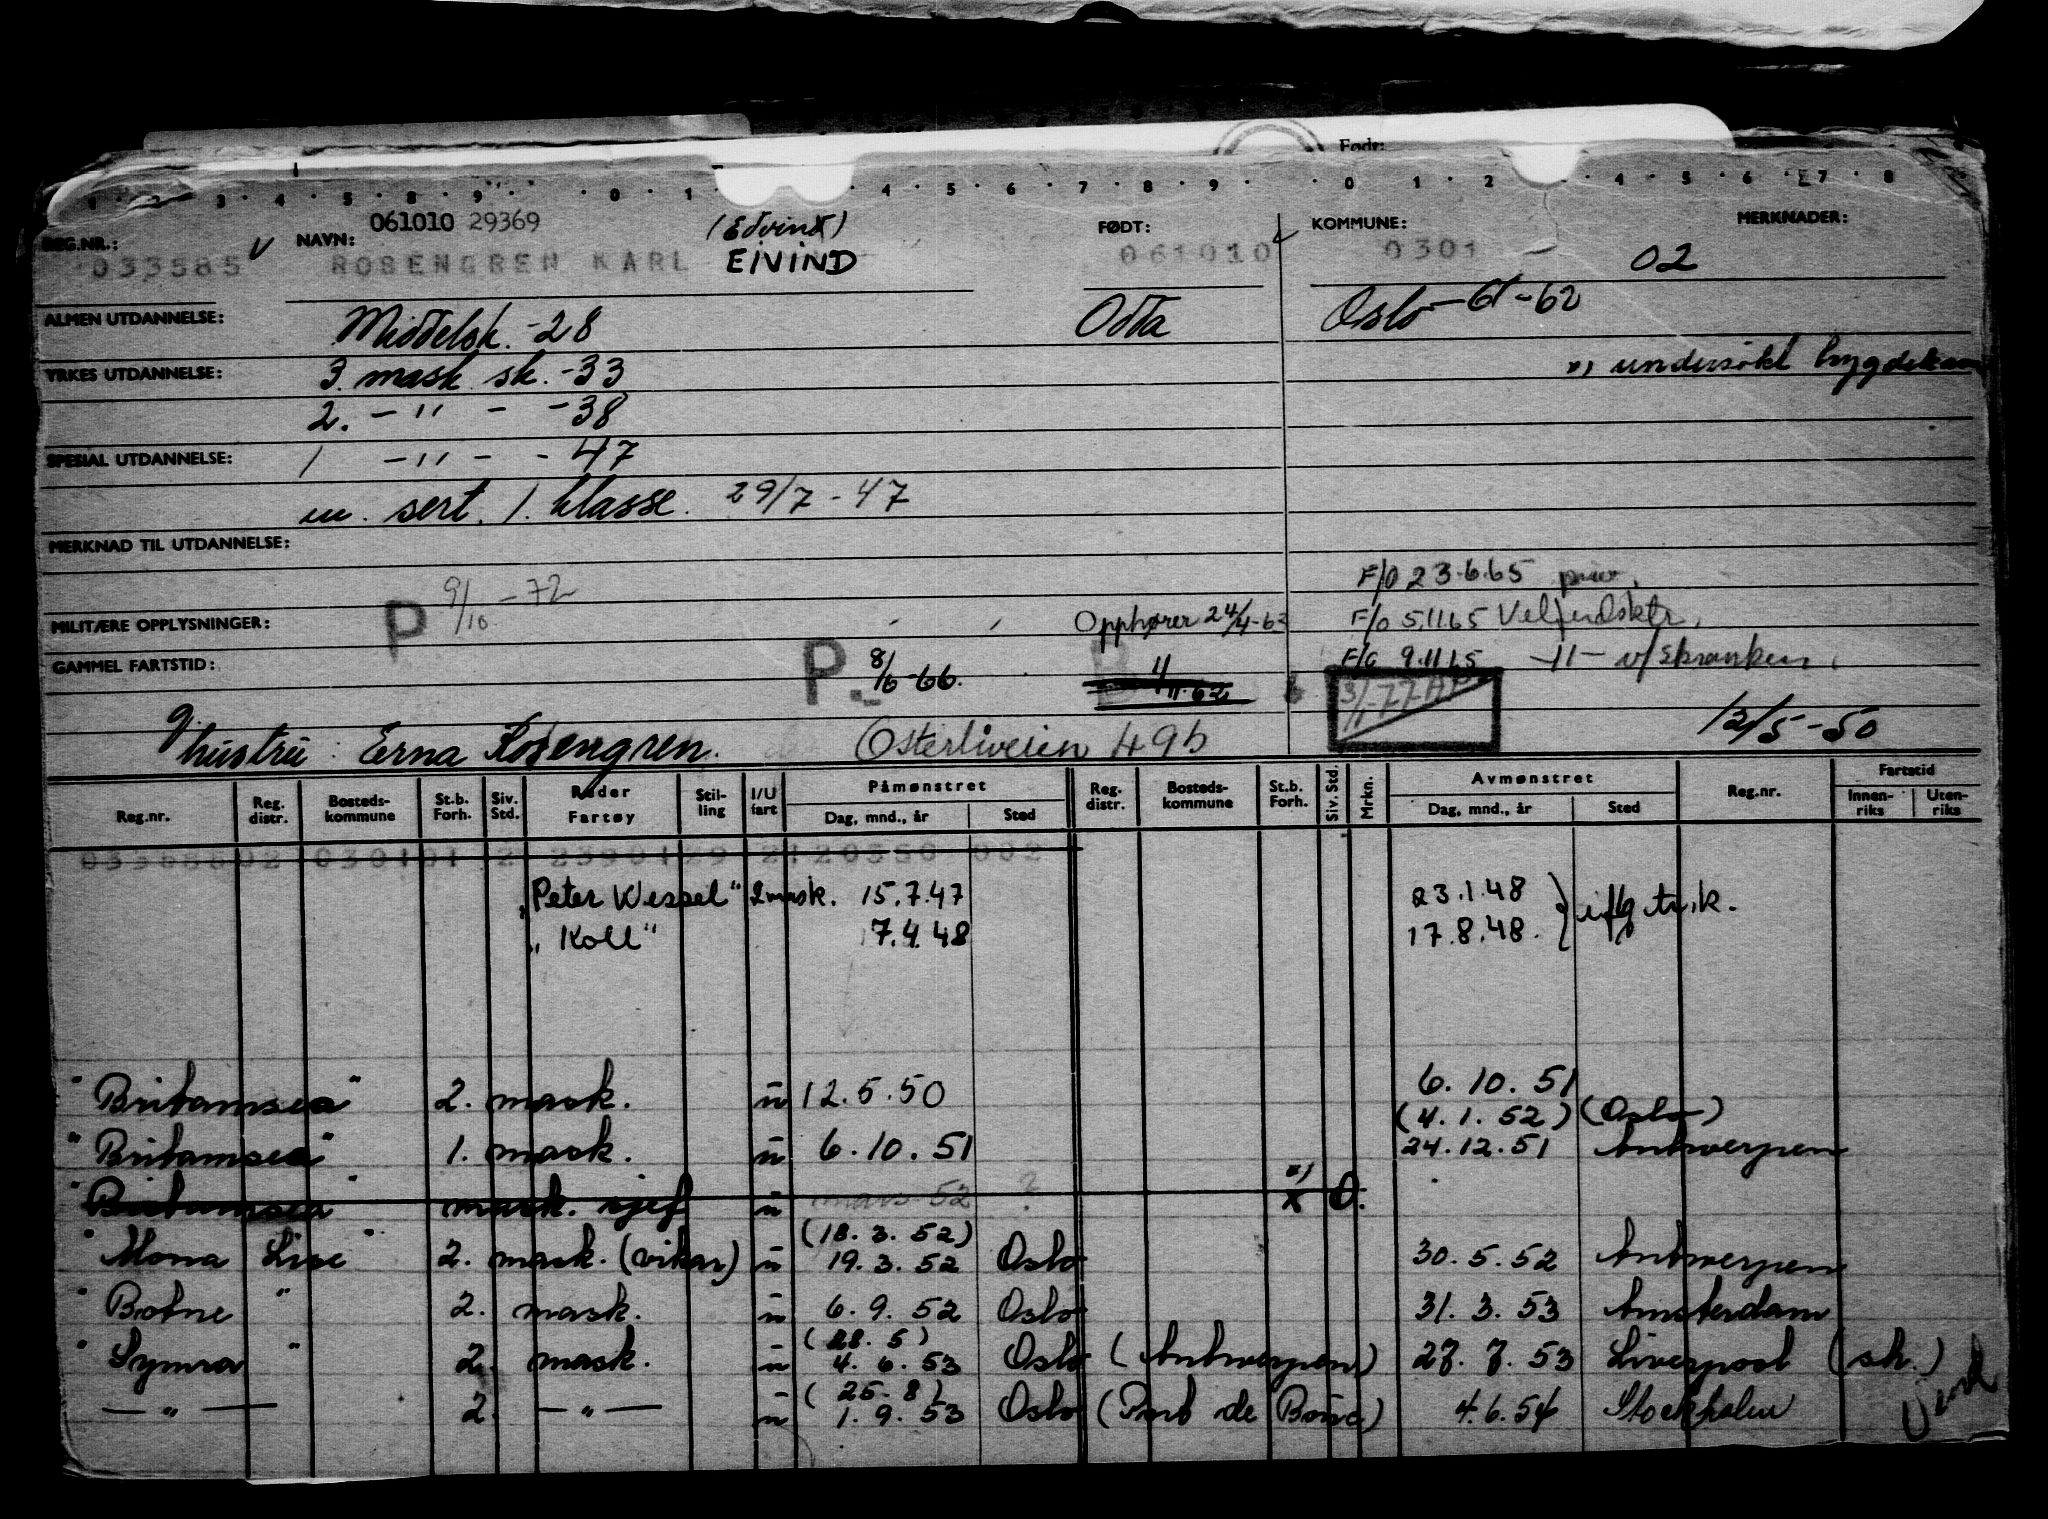 Født:
REG.NR.: 033585 NAVN: 061010 29369 ROSENGREN KARL (Edvind) EIVIND FØDT: 061010 KOMMUNE: 0301 MERKNADER: 02
ALMEN UTDANNELSE: Middelsk. -28 Odda Oslo -61-62
YRKES UTDANNELSE: 3. mask. sk. -33 x) undersøkt
2. -"- - -38
SPESIAL UTDANNELSE: 1 -"- - -47
m. sert. 1. klasse. 29/7 - 47
MERKNAD TIL UTDANNELSE:
P 9/10 -72 F/O 23.6.65
MILITÆRE OPPLYSNINGER: Opphører 24/4-63 F/O 5.11.65 Velferdsktr.
GAMMEL FARTSTID: P. 8/6-66. 4/11-62 F/O 9.11.65 -11- v/skranken.
3/1-77
hustru: Erna Rosengren. Østerliveien 49b 12/5-50
Reg.nr. Reg. distr. Bosteds-kommune St.b. Forh. Siv. Std. Reder Fartøy Stil-ling I/U fart Påmønstret Dag, mnd., år Sted Reg. distr. Bosteds-kommune St.b. Forh. Siv. Std. Mrkn. Avmønstret Dag, mnd., år Sted Reg.nr. Fartstid Innen-riks Uten-riks
„Peter Wessel" 2 mask. 15.7.47 23.1.48
„Koll" 7.4.48 17.8.48.
"Britamsea" 2. mask. u 12.5.50 6.10.51
(4.1.52) (Oslo)
"Britamsea" 1. mask. u 6.10.51 24.12.51 Antwerpen
"Britamsea" mask. sjef u mars 52 ? x) x 0.
(18.3.52)
"Mona Lise" 2. mask. (vikar) u 19.3.52 Oslo 30.5.52 Antwerpen
"Botne" 2. mask. u 6.9.52 Oslo 31.3.53 Amsterdam
(28.5)
"Symra" 2. mask. u 4.6.53 Oslo (Antwerpen) 27.7.53 Liverpool (sk.)
(25.8)
— " — 2. — " — u 1.9.53 Oslo (Port de Bouc) 4.6.54 Stockholm